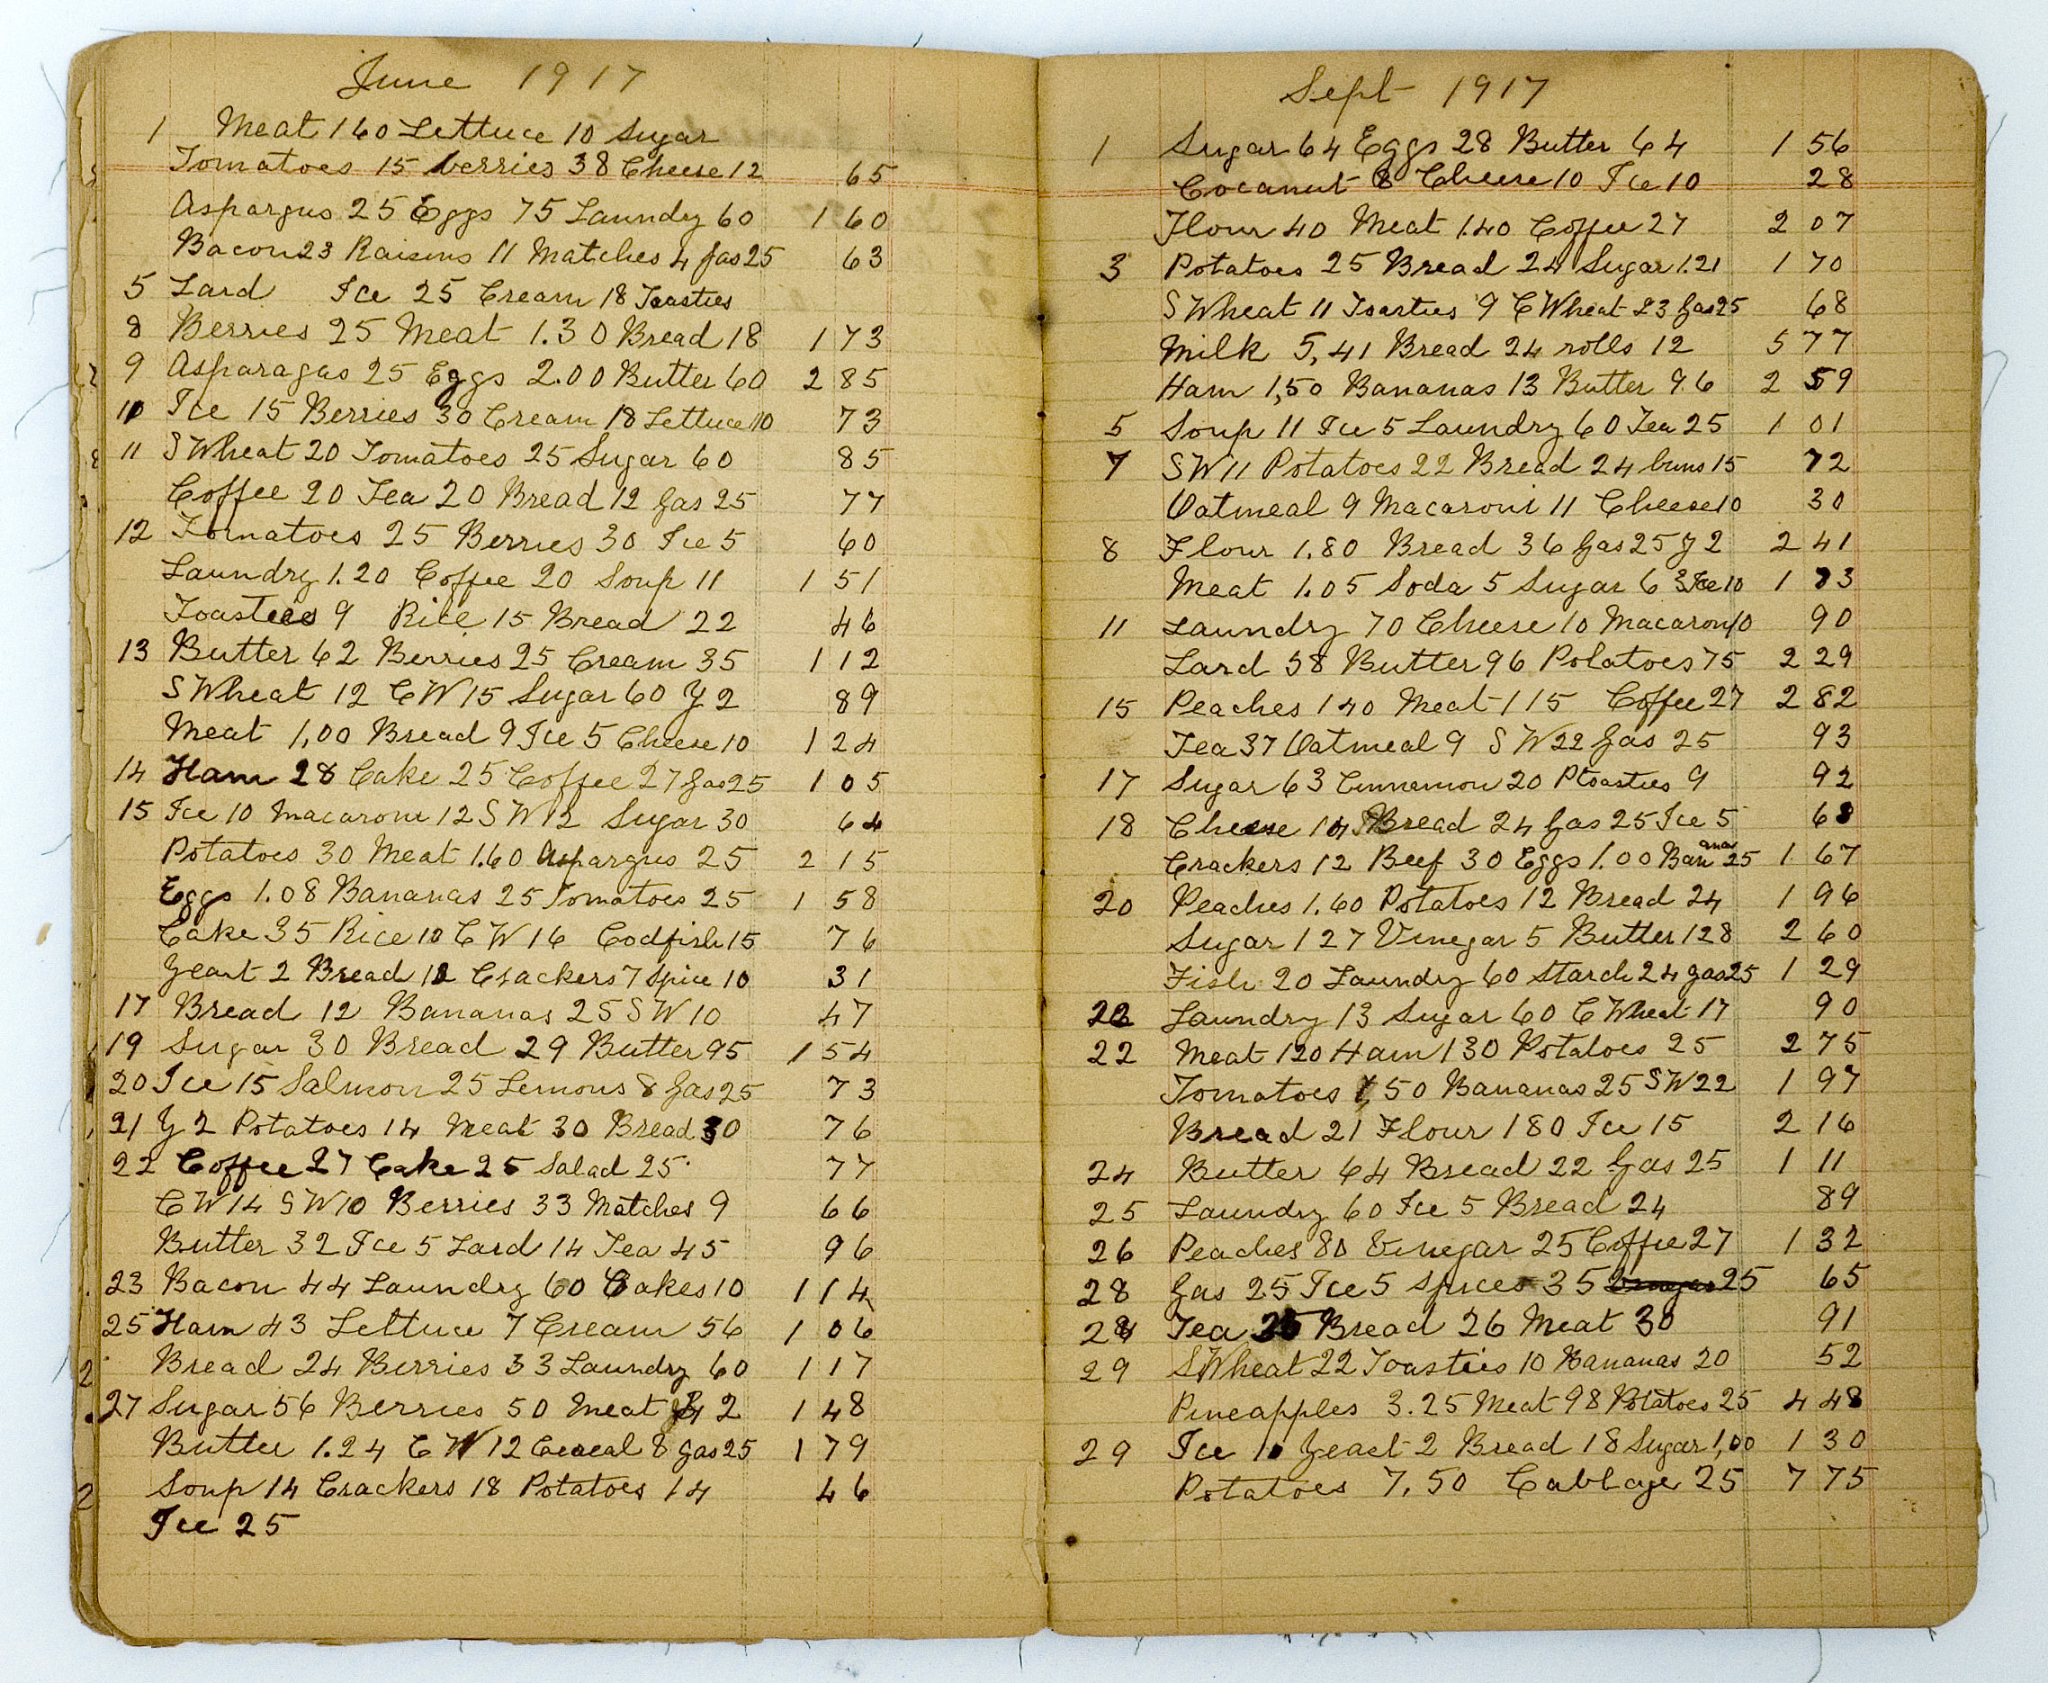 June 1917
1 Meat 160 Lettuce 10 Sugar
Tomatoes 15 berries 38 Cheese 12 65
Aspargus 25 Eggs 75 Laundry 60 1 60
Bacon 23 Raisins 11 Matches 4 gas 25 63
5 Lard Ice 25 Cream 18 Toasties
8 Berries 25 Meat 1.30 Bread 18 1 73
9 Asparagas 25 Eggs 2.00 Butter 60 2 85
10 Ice 15 Berries 30 Cream 18 Lettuce 10 73
11 S Wheat 20 Tomatoes 25 Sugar 60 85
Coffee 20 Tea 20 Bread 12 gas 25 77
12 Tomatoes 25 Berries 30 Ice 5 60
Laundry 1.20 Coffee 20 Soup 11 1 51
Toasties 9 Rice 15 Bread 22 46
13 Butter 62 Berries 25 Cream 35 1 12
S Wheat 12 C W 15 Sugar 60 Y 2 89
Meat 1,00 Bread 9 Ice 5 Cheese 10 1 24
14 Ham 28 Cake 25 Coffee 27 gas 25 1 05
15 Ice 10 Macaroni 12 S W 12 Sugar 30 64
Potatoes 30 Meat 1.60 Aspargus 25 2 15
Eggs 1.08 Bananas 25 Tomatoes 25 1 58
Cake 35 Rice 10 C W 16 Codfish 15 76
Yeast 2 Bread 12 Crackers 7 Spice 10 31
17 Bread 12 Bananas 25 S W 10 47
19 Sugar 30 Bread 29 Butter 95 1 54
20 Ice 15 Salmon 25 Lemons 8 gas 25 73
21 Y 2 Potatoes 14 Meat 30 Bread 30 76
22 Coffee 27 Cake 25 Salad 25 77
C W 14 S W 10 Berries 33 Matches 9 66
Butter 32 Ice 5 Lard 14 Tea 45 96
23 Bacon 44 Laundry 60 Cakes 10 1 14
25 Ham 43 Lettuce 7 Cream 56 1 06
Bread 24 Berries 33 Laundry 60 1 17
27 Sugar 56 Berries 50 Meat 42 1 48
Butter 1.24 C W 12 Cereal 8 gas 25 1 79
Soup 14 Crackers 18 Potatoes 14 46
Ice 25
Sept 1917
1 Sugar 64 Eggs 28 Butter 64 1 56
Cocanut 8 Cheese 10 Ice 10 28
Flour 40 Meat 1.40 Coffee 27 2 07
3 Potatoes 25 Bread 24 Sugar 1.21 1 70
S Wheat 11 Toasties 9 C Wheat 23 gas 25 68
Milk 5,41 Bread 24 rolls 12 5 77
Ham 1,50 Bananas 13 Butter 96 2 59
5 Soup 11 Ice 5 Laundry 60 Tea 25 1 01
7 S W 11 Potatoes 22 Bread 24 buns 15 72
Oatmeal 9 Macaroni 11 Cheese 10 30
8 Flour 1.80 Bread 36 gas 25 Y 2 2 41
Meat 1.05 Soda 5 Sugar 63 Ice 10 1 83
11 Laundry 70 Cheese 10 Macaroni 10 90
Lard 58 Butter 96 Potatoes 75 2 29
15 Peaches 140 Meat 115 Coffee 27 2 82
Tea 37 Oatmeal 9 S W 22 gas 25 93
17 Sugar 63 Cinnamon 20 P toasties 9 92
18 Cheese 14 Bread 24 gas 25 Ice 5 68
Crackers 12 Beef 30 Eggs 1.00 Banana 25 1 67
20 Peaches 1.60 Potatoes 12 Bread 24 1 96
Sugar 127 Vinegar 5 Butter 128 2 60
Fish 20 Laundry 60 Starch 24 gas 25 1 29
22 Laundry 13 Sugar 60 C Wheat 17 90
22 Meat 120 Ham 130 Potatoes 25 2 75
Tomatoes 1,50 Bananas 25 S W 22 1 97
Bread 21 Flour 180 Ice 15 2 16
24 Butter 64 Bread 22 gas 25 1 11
25 Laundry 60 Ice 5 Bread 24 89
26 Peaches 80 Vinegar 25 Coffee 27 1 32
28 Gas 25 Ice 5 Spices 35 25 65
28 Tea 35 Bread 26 Meat 30 91
29 S Wheat 22 Toasties 10 Bananas 20 52
Pineapples 3.25 Meat 98 Potatoes 25 4 48
29 Ice 10 Yeast 2 Bread 18 Sugar 1,00 1 30
Potatoes 7,50 Cabbage 25 7 75